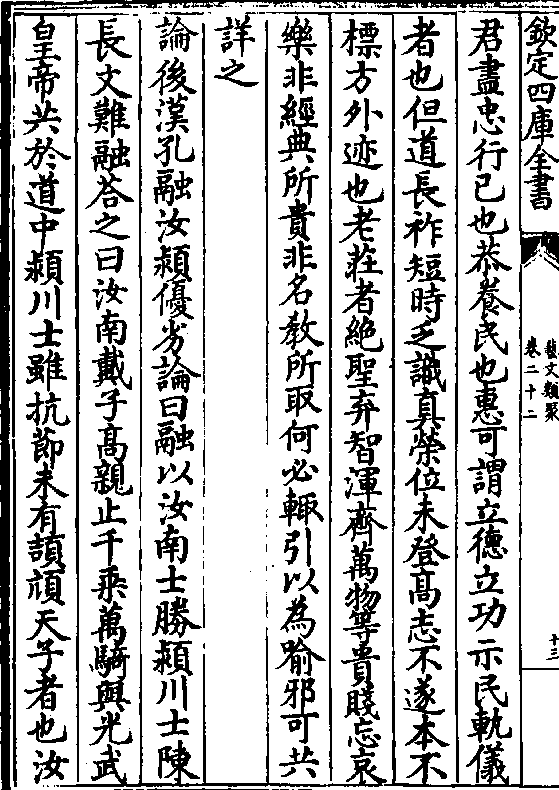 欽定四庫全書
藝文類聚
卷二十二
十三
君盡忠行已也恭養民也惠可謂立德立功示民軌儀
者也但道長祚短時乏識真榮位未登高志不遂本不
標方外迹也老莊者絶聖弃智渾齊萬物等貴賤忘哀
樂非經典所貴非名教所取何必輒引以為喻邪可共
詳之
論後漢孔融汝潁優劣論曰融以汝南士勝潁川士陳
長文難融答之曰汝南戴子高親止千乗萬騎與光武
皇帝共於道中潁川士雖抗節未有頡頏天子者也汝